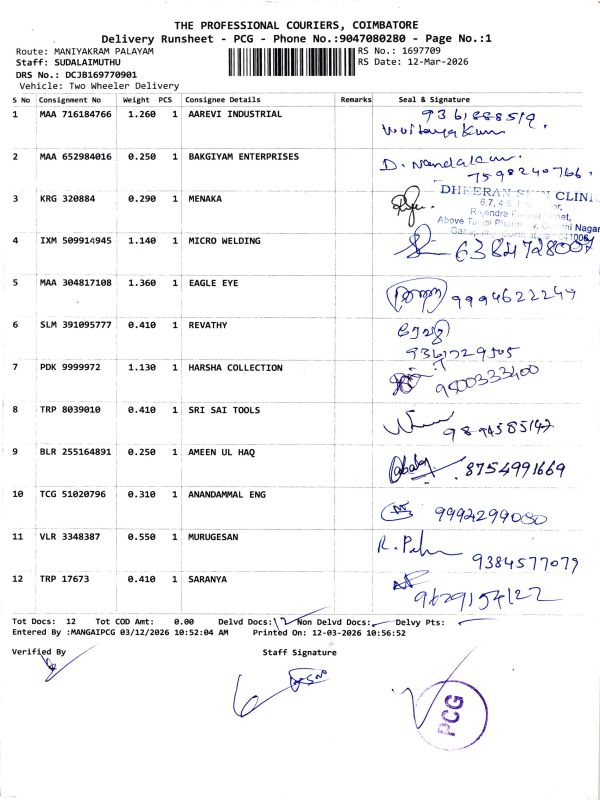 THE PROFESSIONAL COURIERS, COIMBATORE
Delivery Runsheet - PCG - Phone No.:9047080280 - Page No.:1
Route: MANIYAKRAM PALAYAM RS No.: 1697709
Staff: SUDALAIMUTHU RS Date: 12-Mar-2026
DRS No.: DCJB169770901
Vehicle: Two Wheeler Delivery
S No Consignment No Weight PCS Consignee Details Remarks Seal & Signature
1 MAA 716184766 1.260 1 AAREVI INDUSTRIAL
2 MAA 652984016 0.250 1 BAKGIYAM ENTERPRISES D. Nandakumar
7598240766.
3 KRG 320884 0.290 1 MENAKA DHEERAN SKIN CLINIC
4 IXM 509914945 1.140 1 MICRO WELDING 6384728007
5 MAA 304817108 1.360 1 EAGLE EYE 9994622249
6 SLM 391095777 0.410 1 REVATHY ரேவதி
7 PDK 9999972 1.130 1 HARSHA COLLECTION 9500333400
8 TRP 8039010 0.410 1 SRI SAI TOOLS 9894585142
9 BLR 255164891 0.250 1 AMEEN UL HAQ 8754991669
10 TCG 51020796 0.310 1 ANANDAMMAL ENG 9994299080
11 VLR 3348387 0.550 1 MURUGESAN 9384577079
12 TRP 17673 0.410 1 SARANYA 9629154122
Tot Docs: 12 Tot COD Amt: 0.00 Delvd Docs: 12 Non Delvd Docs: Delvy Pts:
Entered By :MANGAIPCG 03/12/2026 10:52:04 AM Printed On: 12-03-2026 10:56:52
Verified By Staff Signature
PCG